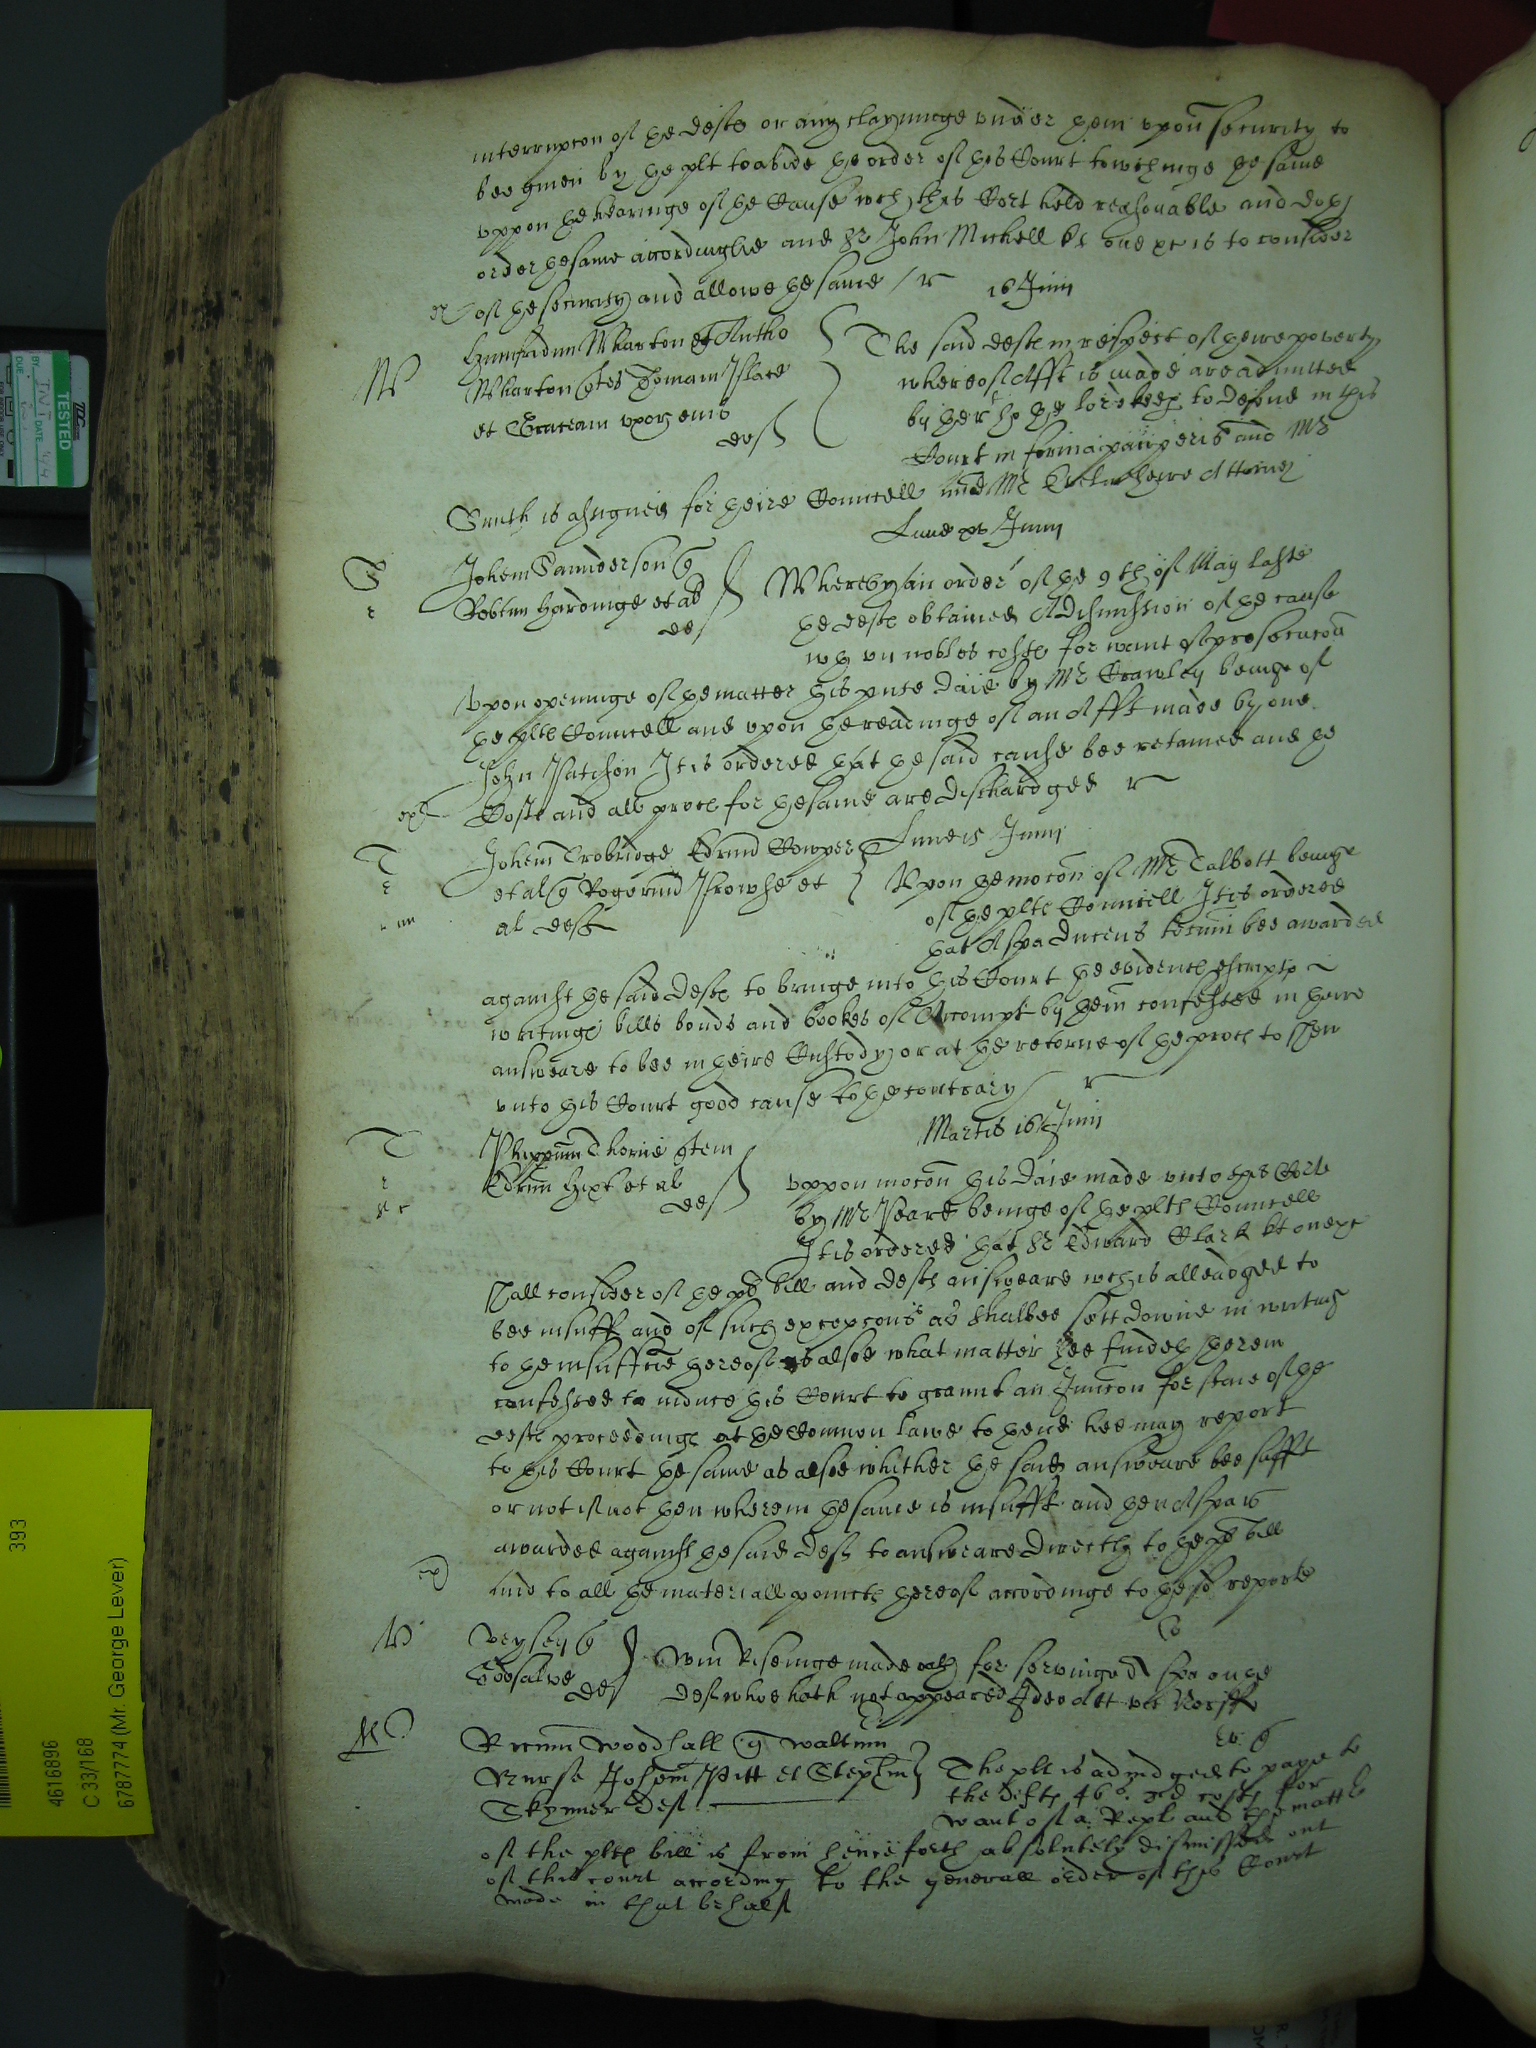 interrupcon of the defts or any clayminge under them upon security to
bee given by the plt to abide the order of this Court towchinge the same
uppon the hearinge of the Cause wch this Cort held reasonable and doth
order the same accordinglie and Sr John Michell kt one &c is to consider
of the security and allowe the same / r 16 Junii
W
Humfridum Wharton et Antho
Wharton quer Thomam Place
et uxorem eius
def
The said deft in respect of theire poverty
whereof Afft is made are admitted
by the Lo: keep to defend in this
Court in forma pauperis and Mr
Smith is assigned for theire Councell and Mr theire Attorney
Lune xv Junii
S
Johem Saunderson q
Robtum Hardinge et al
def
Whereby an order of the 9th of May laste
the deft obtained A dismission of the cause
wth vii nobles costs for want of prosecucon
Upon openinge of the matter this pnte daie by Mr Crawley beinge of
the plts Councell and upon the readinge of an Afft made by one
John Patchon It is ordered that the said cause bee retained and the
Costs and all proces for the same are dischardged r
T
Johem Trobridge Edmund Cowper
et al q Rogerum et
al deft
Lune 15 Junii
Upon the mocon of Mr Talbott beinge
of the plts Councell It is ordered
that A spa ducens tecum bee awarded
against the said deft to bringe into this Court the evidences
writings bills bonds and bookes of Accompt by them confessed in theire
answeare to bee in theire Custody or at the retorne of the proces to shew
unto this Court good cause to the contrary r
Martis 16 Junii
T
Phippum Thorne quer
Edrum et al
def
Uppon mocon this daie made unto this Corte
by Mr Peard beinge of the plts Councell
It is ordered that Sr Edward Clark kt one &c
shall consider of the pts bill and defts answeare wch is alleadged to
bee insuff and of such excepcons as shalbee sett downe in writing
to the insufficie thereof as alsoe what matter hee findeth therein
confessed to induce this Court to graunt an Junccon for staie of the
defts proceedings at the Common lawe to thend hee may report
to this Court the same as alsoe whither the said answeare bee sufft
or not if not then wherein the same is insufft and then A spa is
awarded against the said deft to answeare directly to the pts bill
and to all the materiall points thereof accordinge to the sd reporte
V
Veysey q
Godsalve
def
Wm Riseinge made oath for servinge A spa on the
deft who hath not appeared Ideo Att vic Norff
W
Ricum Woodhall q Waltum
Nurse Johem Pitt et Stephum
Skynner def
The plt is adiudged to paye to
the defts 46s. 3d costs for
want of a Repl and the matter
of the plts bill is from henceforth absolutely dismissed out
of this court according to the generall order of this Court
made in that behalf
TESTED
393
4616896
C 33/168
6787774 (Mr. George Lever)